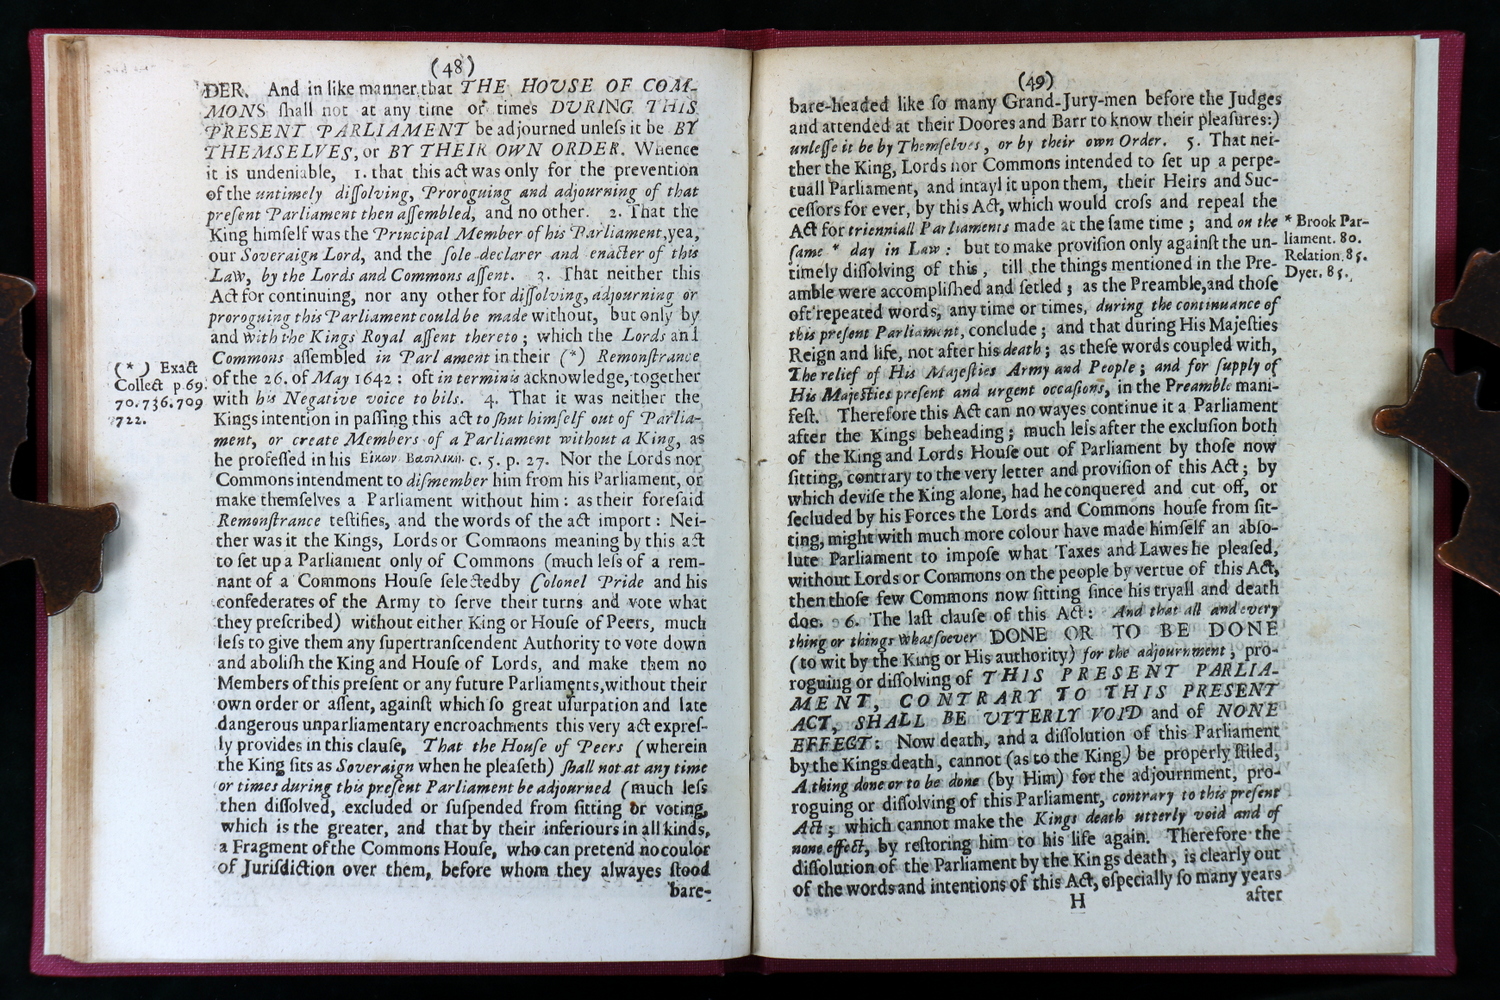 (48)
DER. And in like manner, that THE HOUSE OF COM-
MONS ſhall not at any time or times DURING THIS
PRESENT PARLIAMENT be adjourned unleſs it be BY
THEMSELVES, or BY THEIR OWN ORDER. Whence
it is undeniable, 1. that this act was only for the prevention
of the untimely diſſolving, Proroguing and adjourning of that
preſent Parliament then aſſembled, and no other. 2. That the
King himſelf was the Principal Member of his Parliament, yea,
our Soveraign Lord, and the ſole declarer and enacter of this
Law, by the Lords and Commons aſſent. 3. That neither this
Act for continuing, nor any other for diſſolving, adjourning or
proroguing this Parliament could be made without, but only by
and with the Kings Royal aſſent thereto; which the Lords and
Commons aſſembled in Parlament in their (*) Remonſtrance
of the 26. of May 1642: oft in terminis acknowledge, together
with his Negative voice to bils. 4. That it was neither the
Kings intention in paſſing this act to ſhut himſelf out of Parlia-
ment, or create Members of a Parliament without a King, as
he profeſſed in his Εἰκὼν Βασιλική. c. 5. p. 27. Nor the Lords nor
Commons intendment to diſmember him from his Parliament, or
make themſelves a Parliament without him: as their foreſaid
Remonſtrance teſtifies, and the words of the act import: Nei-
ther was it the Kings, Lords or Commons meaning by this act
to ſet up a Parliament only of Commons (much leſs of a rem-
nant of a Commons Houſe ſelected by Colonel Pride and his
confederates of the Army to ſerve their turns and vote what
they preſcribed) without either King or Houſe of Peers, much
leſs to give them any ſupertranſcendent Authority to vote down
and aboliſh the King and Houſe of Lords, and make them no
Members of this preſent or any future Parliaments, without their
own order or aſſent, againſt which ſo great uſurpation and late
dangerous unparliamentary encroachments this very act expreſ-
ly provides in this clauſe, That the Houſe of Peers (wherein
the King ſits as Soveraign when he pleaſeth) ſhall not at any time
or times during this preſent Parliament be adjourned (much leſs
then diſſolved, excluded or ſuſpended from ſitting or voting,
which is the greater, and that by their inferiours in all kinds,
a Fragment of the Commons Houſe, who can pretend no coulor
of Jurisdiction over them, before whom they alwayes ſtood
bare-
(*) Exact
Collect p.69.
70.736.709
722.
(49)
bare-headed like ſo many Grand-Jury-men before the Judges
and attended at their Doores and Barr to know their pleaſures:)
unleſſe it be by Themſelves, or by their own Order. 5. That nei-
ther the King, Lords nor Commons intended to ſet up a perpe-
tuall Parliament, and intayl it upon them, their Heirs and Suc-
ceſſors for ever, by this Act, which would croſs and repeal the
Act for trienniall Parliaments made at the ſame time; and on the
ſame * day in Law: but to make proviſion only againſt the un-
timely diſſolving of this, till the things mentioned in the Pre-
amble were accompliſhed and ſetled; as the Preamble, and thoſe
oft repeated words, any time or times, during the continuance of
this preſent Parliament, conclude; and that during His Majeſties
Reign and life, not after his death; as theſe words coupled with,
The relief of His Majeſties Army and People; and for ſupply of
His Majeſties preſent and urgent occaſions, in the Preamble mani-
feſt. Therefore this Act can no wayes continue it a Parliament
after the Kings beheading; much leſs after the excluſion both
of the King and Lords Houſe out of Parliament by thoſe now
ſitting, contrary to the very letter and proviſion of this Act; by
which deviſe the King alone, had he conquered and cut off, or
ſecluded by his Forces the Lords and Commons houſe from ſit-
ting, might with much more colour have made himſelf an abſo-
lute Parliament to impoſe what Taxes and Lawes he pleaſed,
without Lords or Commons on the people by vertue of this Act,
then thoſe few Commons now ſitting ſince his tryall and death
doe. 6. The laſt clauſe of this Act: And that all and every
thing or things whatſoever DONE OR TO BE DONE
(to wit by the King or His authority) for the adjournment, pro-
roguing or diſſolving of THIS PRESENT PARLIA-
MENT, CONTRARY TO THIS PRESENT
ACT, SHALL BE UTTERLY VOID and of NONE
EFFECT: Now death, and a diſſolution of this Parliament
by the Kings death, cannot (as to the King) be properly ſtiled,
A thing done or to be done (by Him) for the adjournment, pro-
roguing or diſſolving of this Parliament, contrary to this preſent
Act; which cannot make the Kings death utterly void and of
none effect, by reſtoring him to his life again. Therefore the
diſſolution of the Parliament by the Kings death, is clearly out
of the words and intentions of this Act, eſpecially ſo many years
H after
* Brook Par-
liament. 80.
Relation. 85.
Dyer. 85.